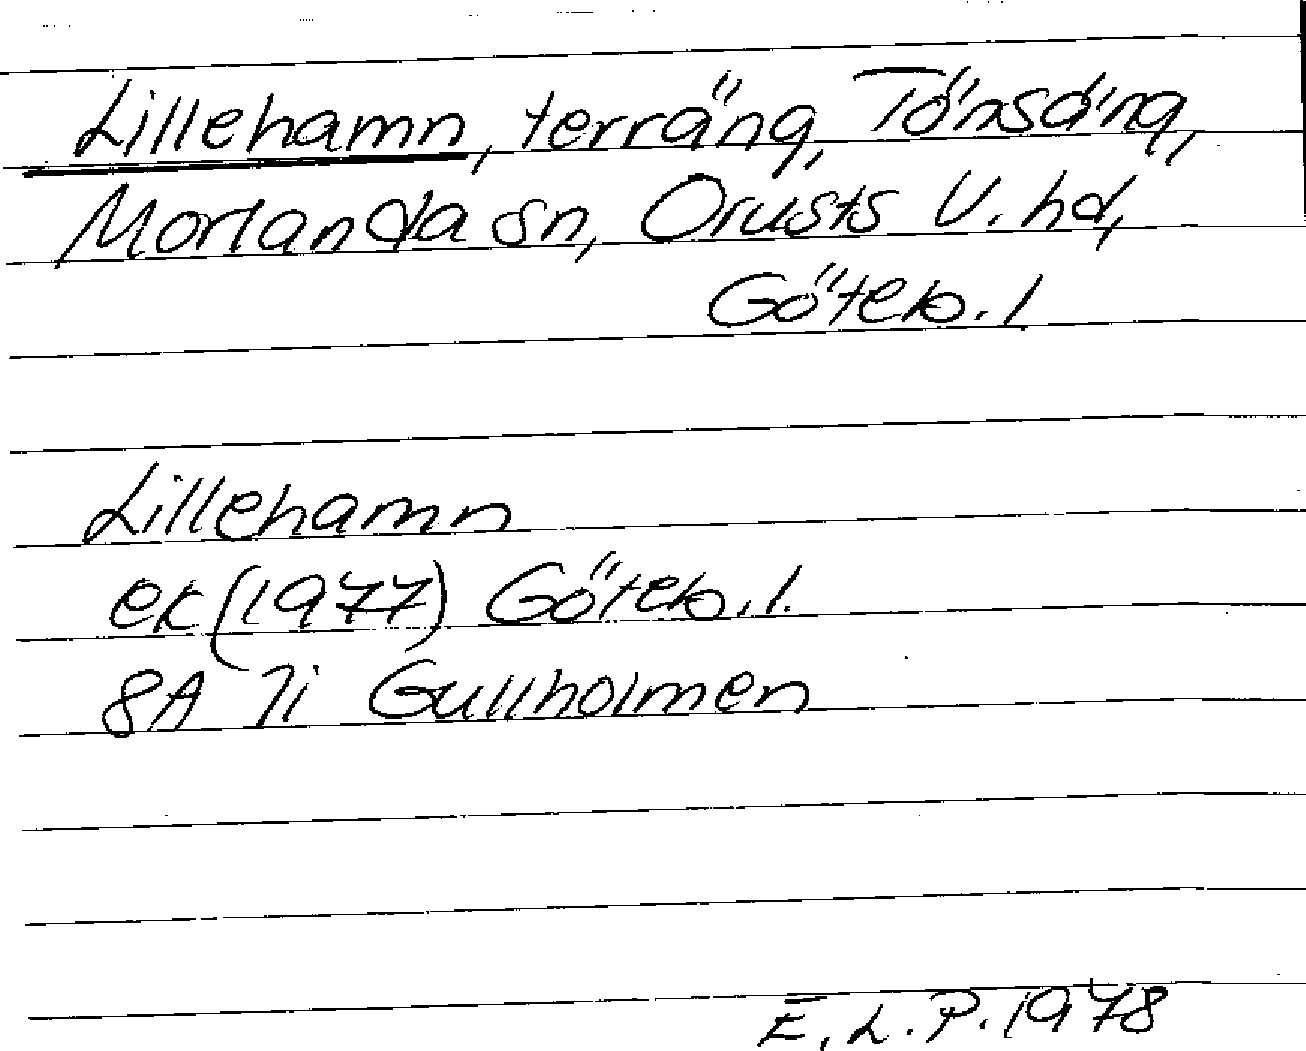 Lillehamn, terräng, Tönsäng,
Morlanda sn, Orusts V. hd,
Göteb. l
Lillehamn
ek (1977) Göteb. l.
8A 7i Gullholmen
E. L. P. 1978